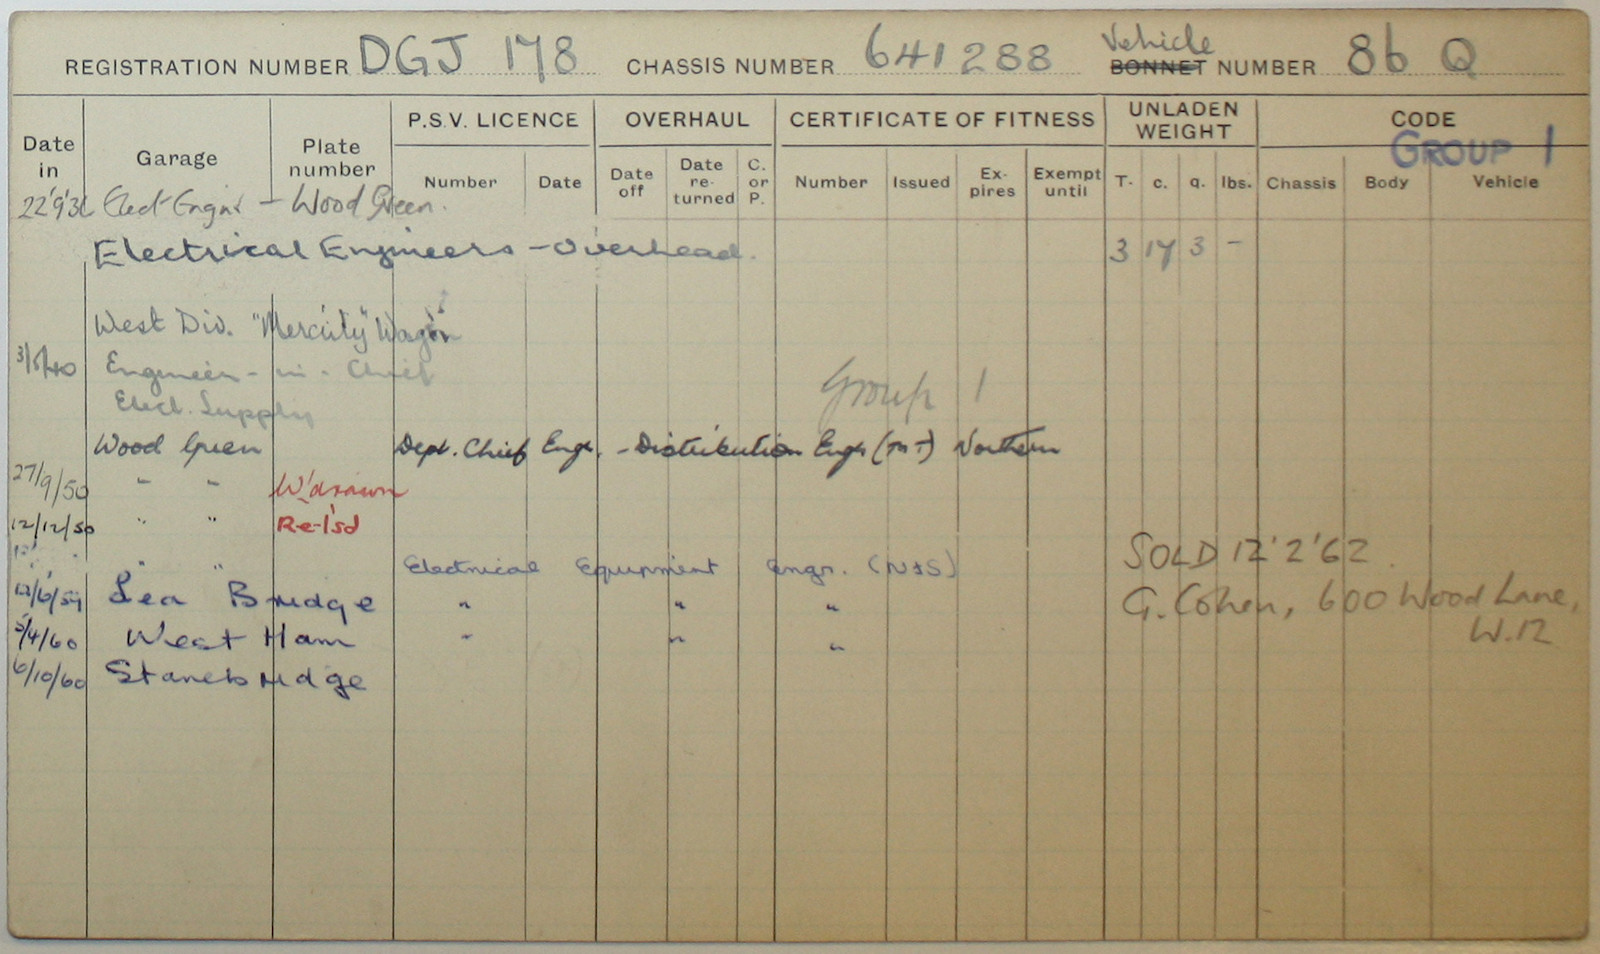 REGISTRATION NUMBER DGJ 178 CHASSIS NUMBER 641288 Vehicle BONNET NUMBER 86 Q
Date in Garage Plate number P.S.V. LICENCE OVERHAUL CERTIFICATE OF FITNESS UNLADEN WEIGHT CODE
GROUP 1
Number Date Date off Date re-turned C. or P. Number Issued Ex-pires Exempt until T. c. q. lbs. Chassis Body Vehicle
22'9'36 Elect Engnr - Wood Green.
Electrical Engineers - Overhead. 3 17 3 -
West Div. "Mercury" Wagon
3/5/40 Engineer - in - Chief
Group 1
Elect. Supply
Wood Green Dept. Chief Engr. - Distribution Engr (T & T) Northern
27/9/50 " " W'drawn
12/12/50 " " Re-l'sd
" " Electrical Equipment Engr. (N&S) SOLD 12'2'62.
12/6/59 Lea Bridge " " " G. Cohen, 600 Wood Lane,
5/4/60 West Ham " " " W.12
6/10/60 Stonebridge